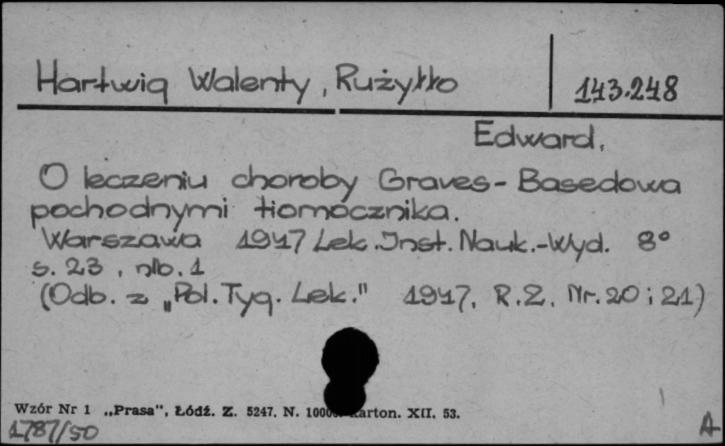 Hartwig Walenty, Rużyłło 143.248
Edward.
O leczeniu choroby Graves-Basedowa
pochodnymi tiomocznika.
Warszawa 1947 Lek.Inst.Nauk.-Wyd. 8°
s. 23, nlb. 1
(Odb. z „Pol.Tyg. Lek." 1947, R.2, Nr. 20 i 21)
Wzór Nr 1 „Prasa", Łódź. Z. 5247. N. Karton. XII. 53.
1787/50 A